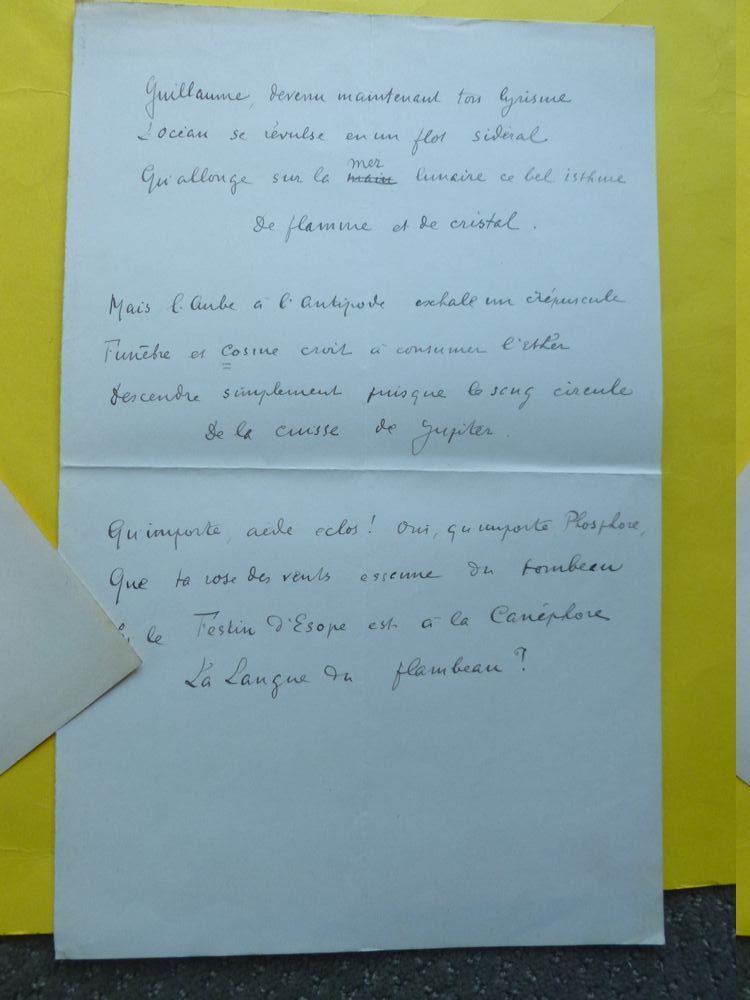 Guillaume, devenu maintenant ton lyrisme
L'océan se révulse en un flot sidéral
Qui allonge sur la mer lunaire ce bel isthme
De flamme et de cristal.
Mais l'Aube à l'Antipode exhale un crépuscule
Funèbre et Cosme croit à consumer l'esther
Descendre simplement puisque le sang circule
De la cuisse de Jupiter.
Qu'importe, aède éclos! Oui, qu'importe Phosphore,
Que ta rose des vents essenne du tombeau
le Festin d'Esope est à la Canéphore
La Langue du flambeau?